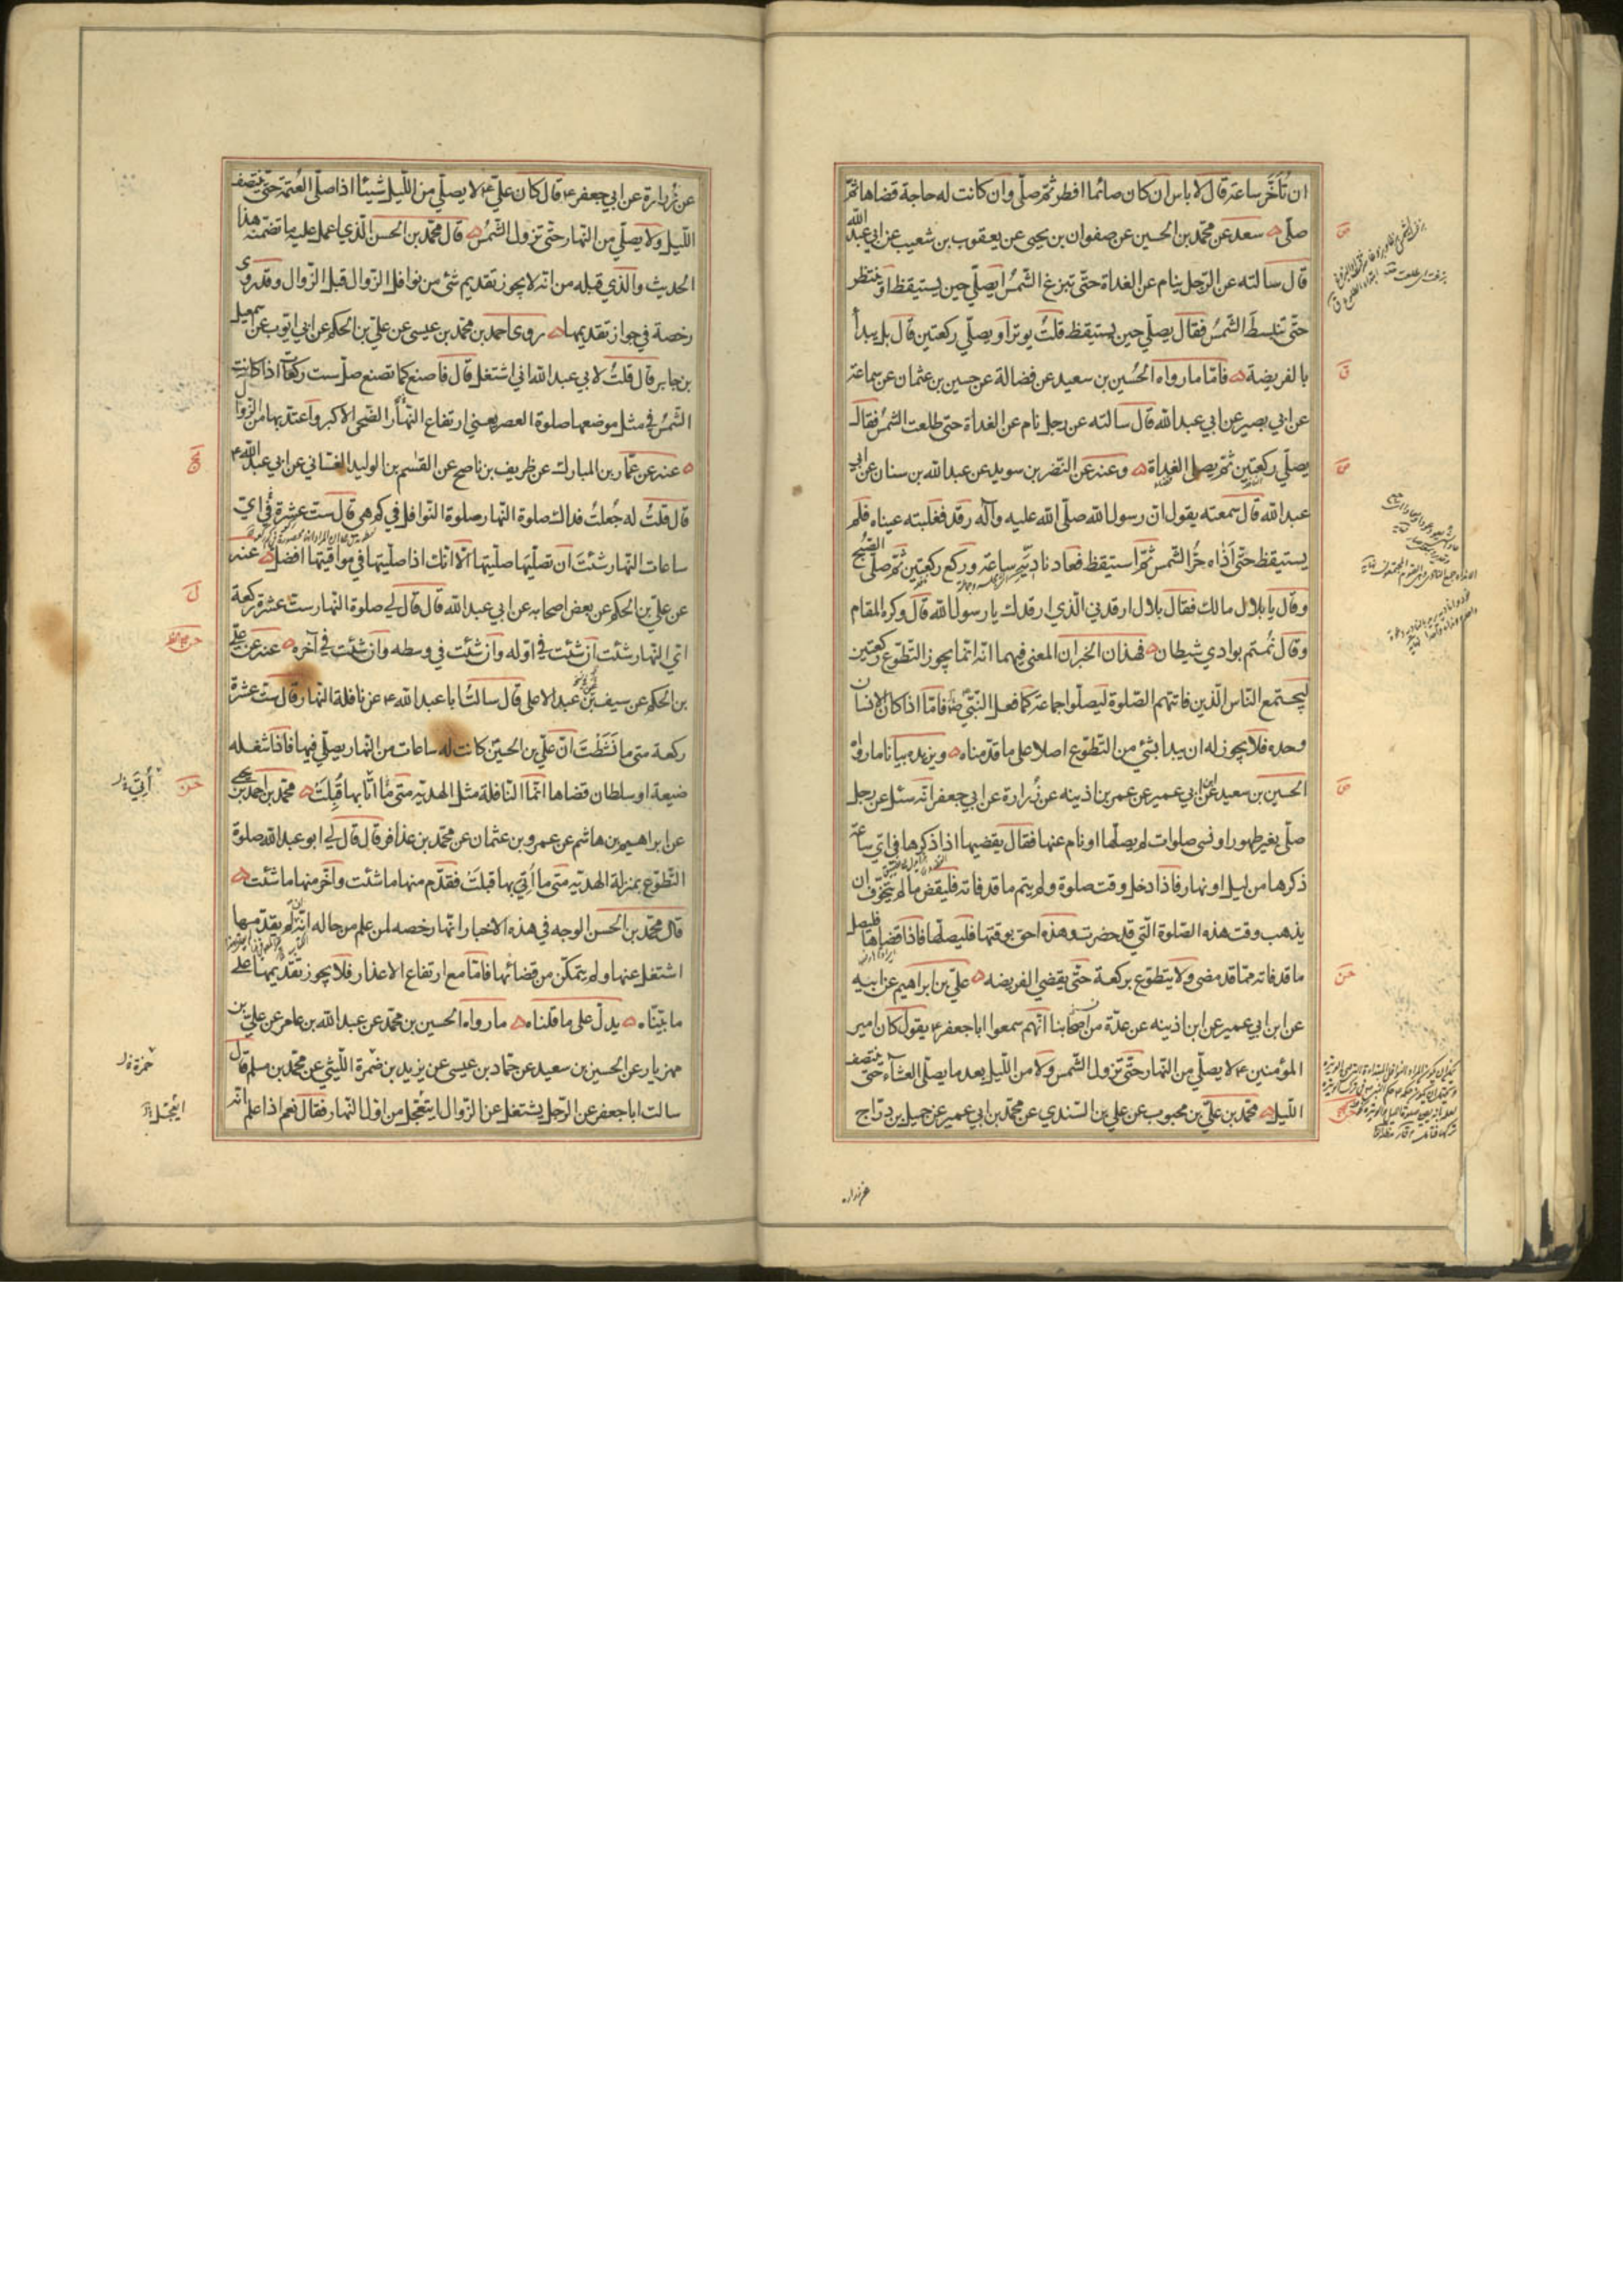 ان تُأَخَّر ساعة قال لا باس ان كان صائما افطر ثمّ صلّى وان كانت له حاجة قضاها ثمّ
صلّى سعد عن محمّد بن الحسين عن صفوان بن يحيى عن يعقوب بن شعيب عن ابي عبد الله
قال سالته عن الرّجل ينام عن الغداة حتّى تبزغ الشّمسُ ايصلّي حين يستيقظ او ينتظر
حتّى تنبسطَ الشّمسُ فقال يصلّي حين يستيقظ قلتُ يوتر او يصلّي ركعتين قال بل يبدأ
بالفريضة فامّا ما رواه الحُسين بن سعيد عن فضالة عن حسين بن عثمان عن سماعة
عن ابي بصير عن ابي عبد الله قال سالته عن رجل نام عن الغداة حتى طلعت الشمسُ فقال
يصلّي ركعتين ثمّ يصلّي الغداة وعنه عن النّضر بن سويد عن عبد الله بن سنان عن ابي
عبد الله قال سمعته يقول انّ رسول الله صلّى الله عليه وآله رقد فغلبته عيناه فلم
يستيقظ حتّى آذاه حرُّ الشّمس ثمّ استيقظ فعاد ناديَه ساعة وركع ركعتين ثمّ صلّى الصّبح
وقال يا بلال مالك فقال بلال ارقدني الّذي ارقدك يا رسول الله قال وكره المقام
وقال نُمتم بوادي شيطان فهذان الخبران المعنى فيهما انّه انّما يجوز التّطوّع ركعتين
ليجتمع النّاس الّذين فاتتهم الصّلوة ليصلّوا جماعة كما فعل النّبيّ فامّا اذا كان الانسان
وحده فلا يجوز له ان يبدأ بشئ من التّطوّع اصلا على ما قدّمناه ويزيده بيانا ما رواه
الحسين بن سعيد عن ابن ابي عمير عن عمر بن اذينه عن زُرارة عن ابي جعفر انّه سئل عن رجل
صلّى بغير طهور او نسى صلوات لم يصلّها او نام عنها فقال يقضيها اذا ذكرها في ايّ ساعة
ذكرها من ليل او نهار فاذا دخل وقت صلوة ولم يتم ما قد فاته فليقض ما لم يتخوّف ان
يذهب وقت هذه الصّلوة الّتي قد حضرت وهذه احق بوقتها فليصلّها فاذا قضاها فليصل
ما قد فاته ممّا قد مضى ولا يتطوّع بركعة حتّى يقضي الفريضه علّي بن ابراهيم عن ابيه
عن ابن ابي عمير عن ابن اذينه عن عدّة من اصحابنا انّهم سمعوا ابا جعفر ع يقول كان امير
المؤمنين ع لا يصلّي من النّهار حتّى تزول الشّمس ولا من اللّيل بعد ما يصلّي العشآء حتّى ينتصف
اللّيل محمّد بن علّي بن محبوب عن علي بن السّندي عن محمّد بن ابي عمير عن جميل بن درّاج
عن زرارة
عن زُرارة عن ابي جعفر ع قال كان علّي ع لا يصلّي من اللّيل شيئا اذا صلّى العتمة حتّى ينتصف
اللّيل ولا يصلّي من النّهار حتّى تزول الشّمسُ قال محمّد بن الحسن الّذي اعمل عليه ما تضمنه هذا
الحديث والّذي قبله من انّه لا يجوز تقديم شئ من نوافل الزّوال قبل الزّوال وقد روى
رخصة في جواز تقديمها روى احمد بن محمّد بن عيسى عن علّي بن الحكم عن ابي ايّوب عن اسمعيل
بن جابر قال قلتُ لابي عبد الله اني اشتغل قال فاصنع كما تصنع صلّ ست ركعات اذا كانت
الشّمسُ في مثل موضعها صلوة العصر يعني ارتفاع النّهار الضّحى الاكبر واعتدّ بها من الزّوال
عنه عن عمّار بن المبارك عن ظريف بن ناصح عن القسم بن الوليد الغسّاني عن ابي عبد الله ع
قال قلتُ له جُعلتُ فداك صلوة النّهار صلوة النّوافل في كم هي قال ست عشرة في ايّ
ساعات النّهار شئتَ ان تصلّيها صلّيتها الّا انّك اذا صلّيتها في مواقيتها افضل عنه
عن علّي بن الحكم عن بعض اصحابه عن ابي عبد الله قال قال لي صلوة النّهار ست عشرة ركعة
ايّ النّهار شئت ان شئت في اوّله وان شئت في وسطه وان شئت في آخره عنه عن علي
بن الحكم عن سيف بن عبد الاعلى قال سالتُ ابا عبد الله ع عن نافلة النّهار قال ست عشرة
ركعة متى ما نَشَطْتَ انّ علّي بن الحسين كانت له ساعات من النّهار يصلّي فيها فاذا شغله
ضيعة او سلطان قضاها انّما النّافلة مثل الهديّه متى ما اتا بها قُبِلَتْ محمّد بن احمد بن يحيى
عن ابراهيم بن هاشم عن عمرو بن عثمان عن محمّد بن عذافر قال قال لي ابو عبد الله صلوة
التّطوّع بمنزلة الهديّه متى ما اُتِيَ بها قبلتْ فقدّم منها ما شئت واخّر منها ما شئت
قال محمّد بن الحسن الوجه في هذه الاخبار انّها رخصه لمن علم من حاله انّه ان لم يقدّمها
اشتغل عنها ولم يتمكّن من قضائها فامّا مع ارتفاع الاعذار فلا يجوز تقديمها على
ما بيّنّاه يدلّ على ما قلناه ما رواه الحسين بن محمّد عن عبد الله بن عامر عن علّي بن
مهزيار عن الحسين بن سعيد عن حمّاد بن عيسى عن يزيد بن ضمرة اللّيثي عن محمّد بن مسلم قال
سالت ابا جعفر عن الرّجل يشتغل عن الزّوال ايتعجّل من اوّل النّهار فقال نعم اذا علم انّه